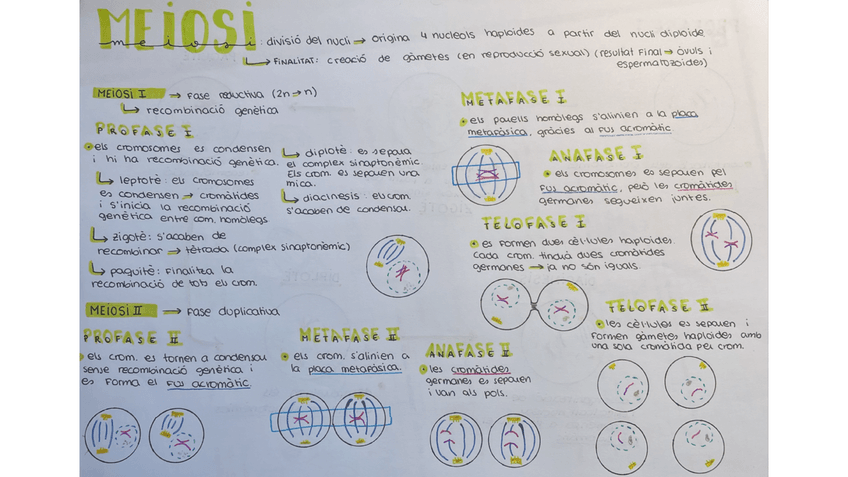 MEIOSI
meiosi: divisió del nucli → origina 4 nucleols haploides a partir del nucli diploide
FINALITAT: creació de gàmetes (en reproducció sexual) (resultat final → òvuls i
espermatozoides)
MEIOSI I → fase reductiva (2n → n)
recombinació genètica
PROFASE I
els cromosomes es condensen
i hi ha recombinació genètica.
leptotè: els cromosomes
es condensen → cromàtides
i s'inicia la recombinació
genètica entre crom. homòlegs
zigotè: s'acaben de
recombinar → tètrada (complex sinaptonèmic)
paquitè: finalitza la
recombinació de tots els crom.
diplotè: es separa
el complex sinaptonèmic.
Els crom. es separen una
mica.
diacinesis: els crom.
s'acaben de condensar.
METAFASE I
els parells homòlegs s'alinien a la placa
metafàsica, gràcies al fus acromàtic.
ANAFASE I
els cromosomes es separen pel
fus acromàtic, però les cromàtides
germanes segueixen juntes.
TELOFASE I
es formen dues cèl·lules haploides.
Cada crom. tindrà dues cromàtides
germanes → ja no són iguals.
MEIOSI II → fase duplicativa
PROFASE II
els crom. es tornen a condensar
sense recombinació genètica i
es forma el fus acromàtic.
METAFASE II
els crom. s'alinien a
la placa metafàsica.
ANAFASE II
les cromàtides
germanes es separen
i van als pols.
TELOFASE II
les cèl·lules es separen i
formen gàmetes haploides amb
una sola cromàtida per crom.